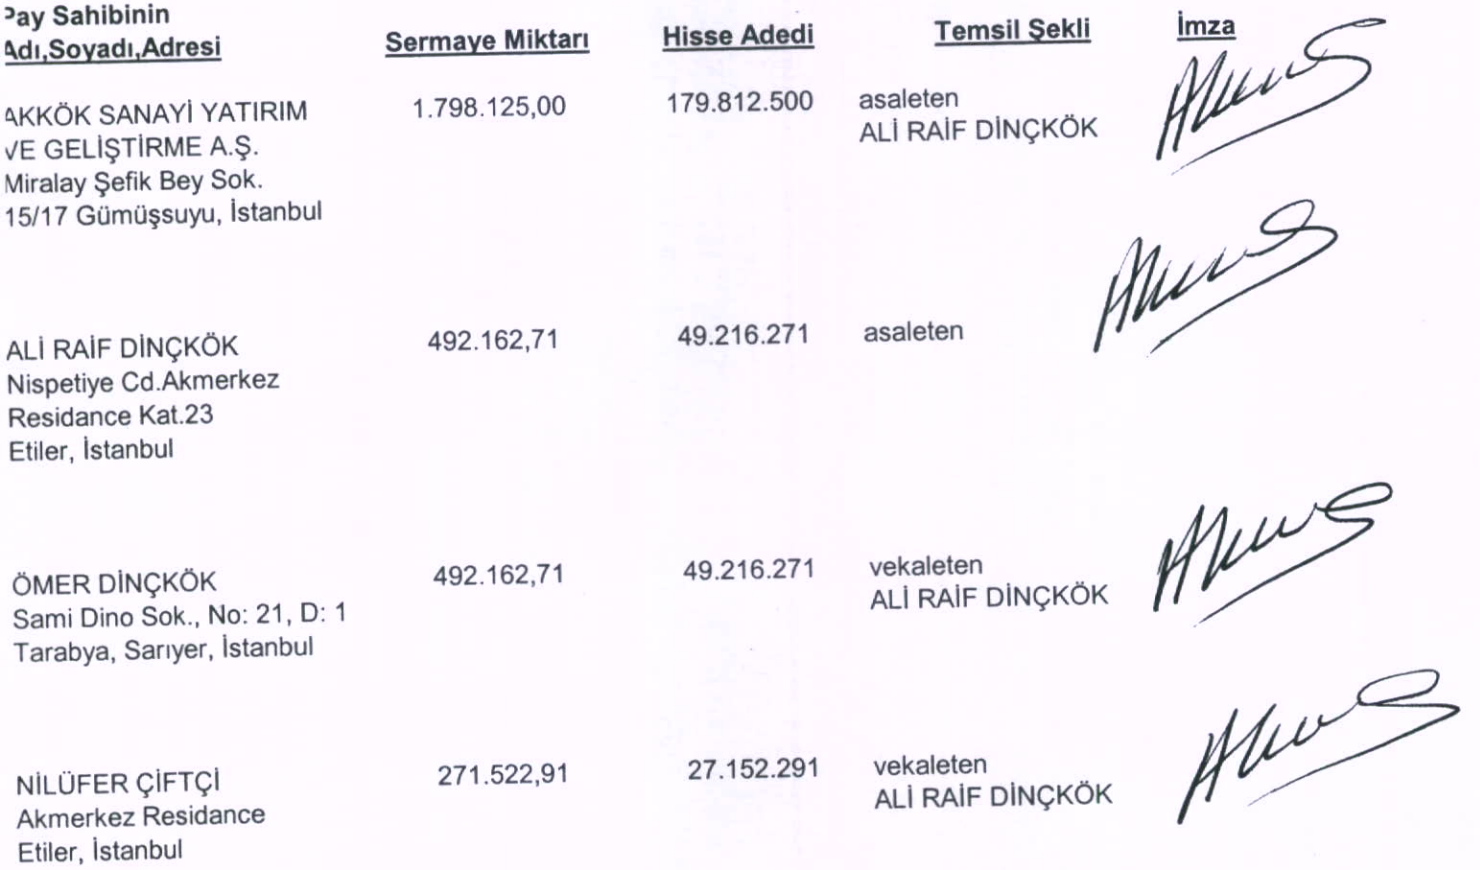 Pay Sahibinin
Adı,Soyadı,Adresi
Sermaye Miktarı
Hisse Adedi
Temsil Şekli
İmza
AKKÖK SANAYİ YATIRIM
VE GELİŞTİRME A.Ş.
Miralay Şefik Bey Sok.
15/17 Gümüşsuyu, İstanbul
1.798.125,00
179.812.500
asaleten
ALİ RAİF DİNÇKÖK
ALİ RAİF DİNÇKÖK
Nispetiye Cd.Akmerkez
Residance Kat.23
Etiler, İstanbul
492.162,71
49.216.271
asaleten
ÖMER DİNÇKÖK
Sami Dino Sok., No: 21, D: 1
Tarabya, Sarıyer, İstanbul
492.162,71
49.216.271
vekaleten
ALİ RAİF DİNÇKÖK
NİLÜFER ÇİFTÇİ
Akmerkez Residance
Etiler, İstanbul
271.522,91
27.152.291
vekaleten
ALİ RAİF DİNÇKÖK